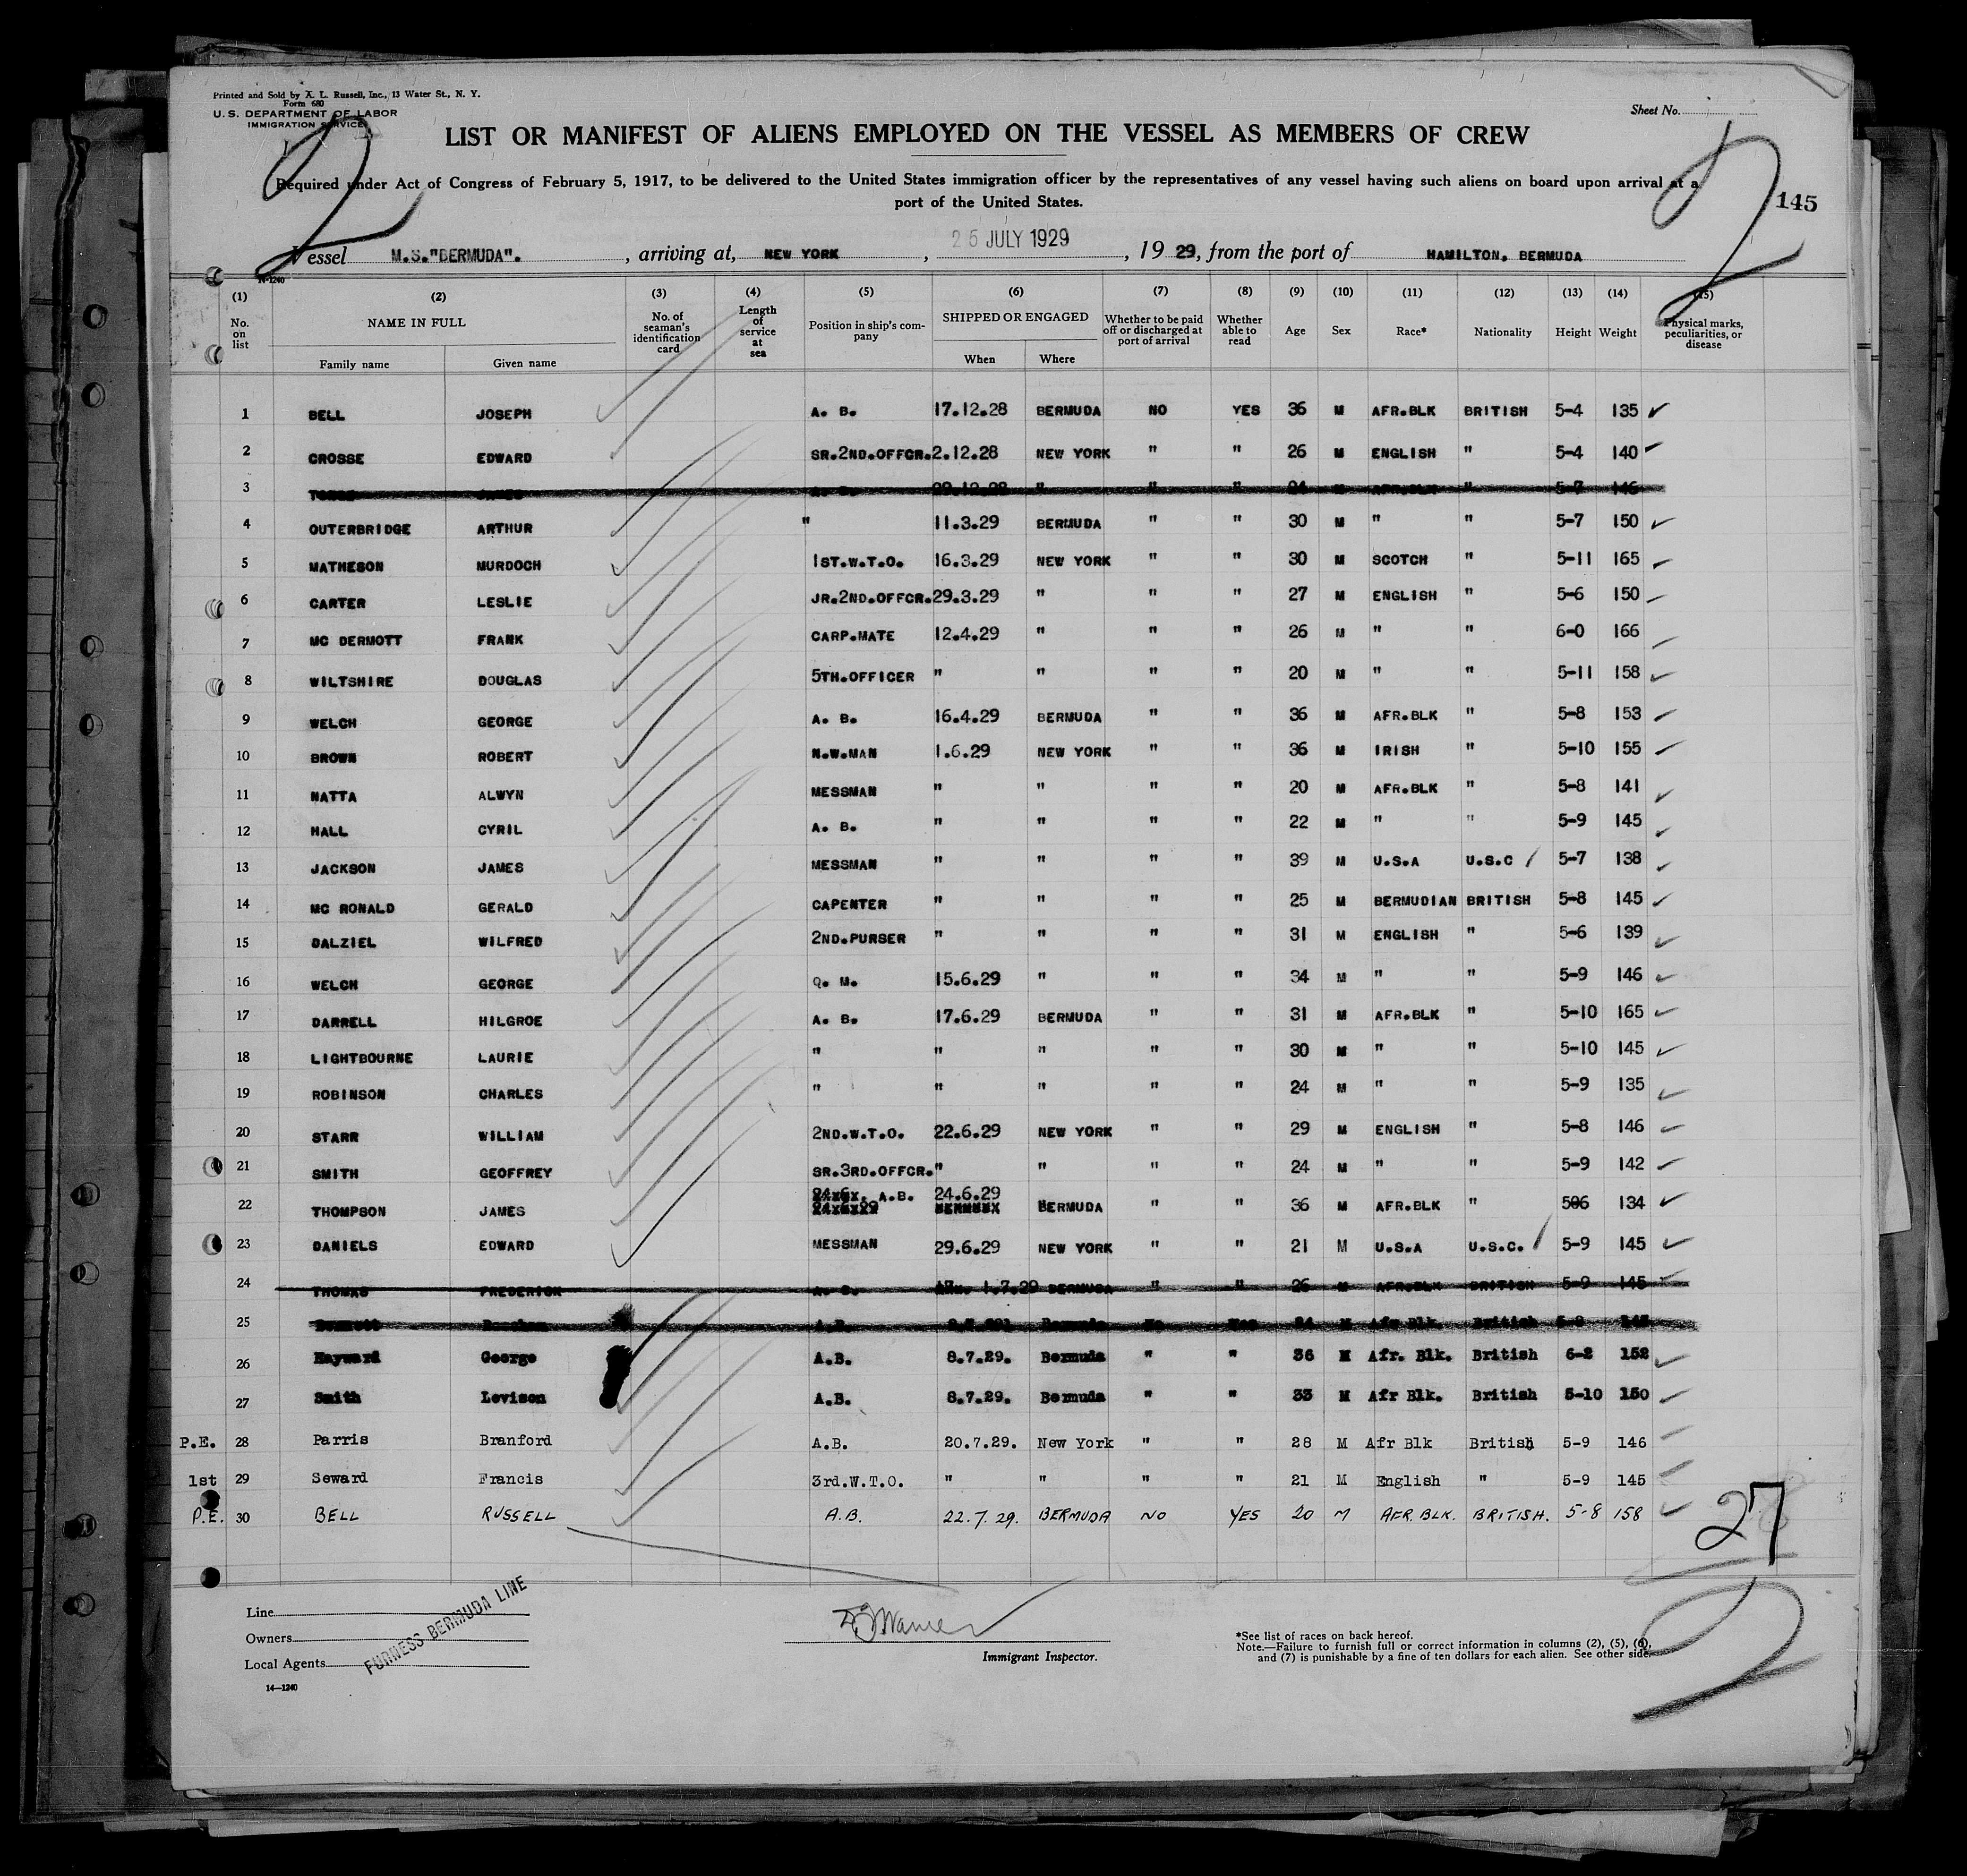 Printed and Sold by A. L. Russell, Inc., 13 Water St., N. Y.
Form 680
U. S. DEPARTMENT OF LABOR
IMMIGRATION SERVICE
Sheet No.
LIST OR MANIFEST OF ALIENS EMPLOYED ON THE VESSEL AS MEMBERS OF CREW
Required under Act of Congress of February 5, 1917, to be delivered to the United States immigration officer by the representatives of any vessel having such aliens on board upon arrival at a
port of the United States.
2 2
145
Vessel M.S."BERMUDA". , arriving at, NEW YORK , 25 JULY 1929 , 19 29, from the port of HAMILTON, BERMUDA
14-1240
(1) (2) (3) (4) (5) (6) (7) (8) (9) (10) (11) (12) (13) (14) (15)
No. on list NAME IN FULL Family name Given name No. of seaman's identification card Length of service at sea Position in ship's company SHIPPED OR ENGAGED When Where Whether to be paid off or discharged at port of arrival Whether able to read Age Sex Race* Nationality Height Weight Physical marks, peculiarities, or disease
1 BELL JOSEPH A. B. 17.12.28 BERMUDA NO YES 36 M AFR.BLK BRITISH 5-4 135
2 CROSSE EDWARD SR.2ND.OFFCR. 2.12.28 NEW YORK " " 26 M ENGLISH " 5-4 140
3 A. B. 29.12.28 " " " 24 M AFR.BLK " 5-7 146
4 OUTERBRIDGE ARTHUR " 11.3.29 BERMUDA " " 30 M " " 5-7 150
5 MATHESON MURDOCH 1ST.W.T.O. 16.3.29 NEW YORK " " 30 M SCOTCH " 5-11 165
6 CARTER LESLIE JR.2ND.OFFCR. 29.3.29 " " " 27 M ENGLISH " 5-6 150
7 MC DERMOTT FRANK CARP.MATE 12.4.29 " " " 26 M " " 6-0 166
8 WILTSHIRE DOUGLAS 5TH.OFFICER " " " " 20 M " " 5-11 158
9 WELCH GEORGE A. B. 16.4.29 BERMUDA " " 36 M AFR.BLK " 5-8 153
10 BROWN ROBERT N.W.MAN 1.6.29 NEW YORK " " 36 M IRISH " 5-10 155
11 NATTA ALWYN MESSMAN " " " " 20 M AFR.BLK " 5-8 141
12 HALL CYRIL A. B. " " " " 22 M " " 5-9 145
13 JACKSON JAMES MESSMAN " " " " 39 M U.S.A U.S.C 5-7 138
14 MC RONALD GERALD CAPENTER " " " " 25 M BERMUDIAN BRITISH 5-8 145
15 DALZIEL WILFRED 2ND.PURSER " " " " 31 M ENGLISH " 5-6 139
16 WELCH GEORGE Q. M. 15.6.29 " " " 34 M " " 5-9 146
17 DARRELL HILGROE A. B. 17.6.29 BERMUDA " " 31 M AFR.BLK " 5-10 165
18 LIGHTBOURNE LAURIE " " " " " 30 M " " 5-10 145
19 ROBINSON CHARLES " " " " " 24 M " " 5-9 135
20 STARR WILLIAM 2ND.W.T.O. 22.6.29 NEW YORK " " 29 M ENGLISH " 5-8 146
21 SMITH GEOFFREY SR.3RD.OFFCR. " " " " 24 M " " 5-9 142
22 THOMPSON JAMES A.B. 24.6.29 BERMUDA " " 36 M AFR.BLK " 506 134
23 DANIELS EDWARD MESSMAN 29.6.29 NEW YORK " " 21 M U.S.A U.S.C. 5-9 145
24 THOMAS FREDERICK A. B. 1.7.29 BERMUDA " " 26 M AFR.BLK BRITISH 5-9 145
25 A.B. Bermuda No Yes 24 M Afr Blk. British
26 Hayward George A.B. 8.7.29. Bermuda " " 36 M Afr. Blk. British 6-2 152
27 Smith Levison A.B. 8.7.29. Bermuda " " 33 M Afr Blk. British 5-10 150
P.E. 28 Parris Branford A.B. 20.7.29. New York " " 28 M Afr Blk British 5-9 146
1st 29 Seward Francis 3rd.W.T.O. " " " " 21 M English " 5-9 145
P.E. 30 BELL RUSSELL A.B. 22.7.29. BERMUDA NO YES 20 M AFR. BLK. BRITISH. 5-8 158
27
Line
Owners
Local Agents
FURNESS BERMUDA LINE
14—1240
Immigrant Inspector.
*See list of races on back hereof.
Note.—Failure to furnish full or correct information in columns (2), (5), (6),
and (7) is punishable by a fine of ten dollars for each alien. See other side.
2